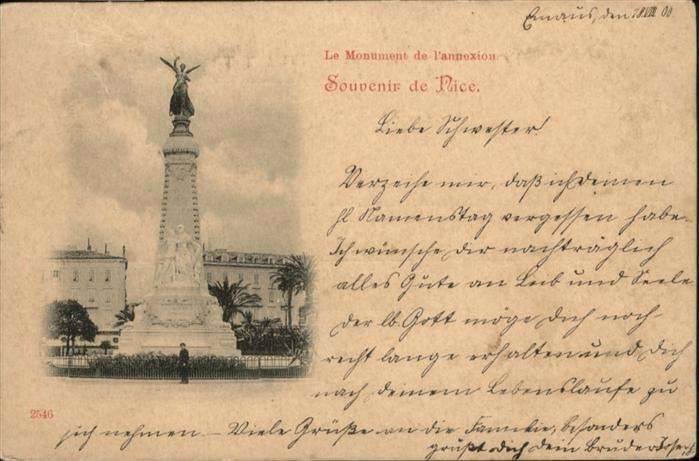 Emaus, den 28 VIII 00
Le Monument de l'annexion.
Souvenir de Nice.
Liebe Schwester!
Verzeihe mir, daß ich deinen
hl. Namenstag vergessen habe.
Ich wünsche dir nachträglich
alles Gute an Leib und Seele
der lb. Gott möge dich noch-
recht lange erhalten und dich
nach deinem Lebenslaufe zu
sich nehmen. – Viele Grüße an die Familie, besonders
grüßt dich dein Bruder Josef
2546